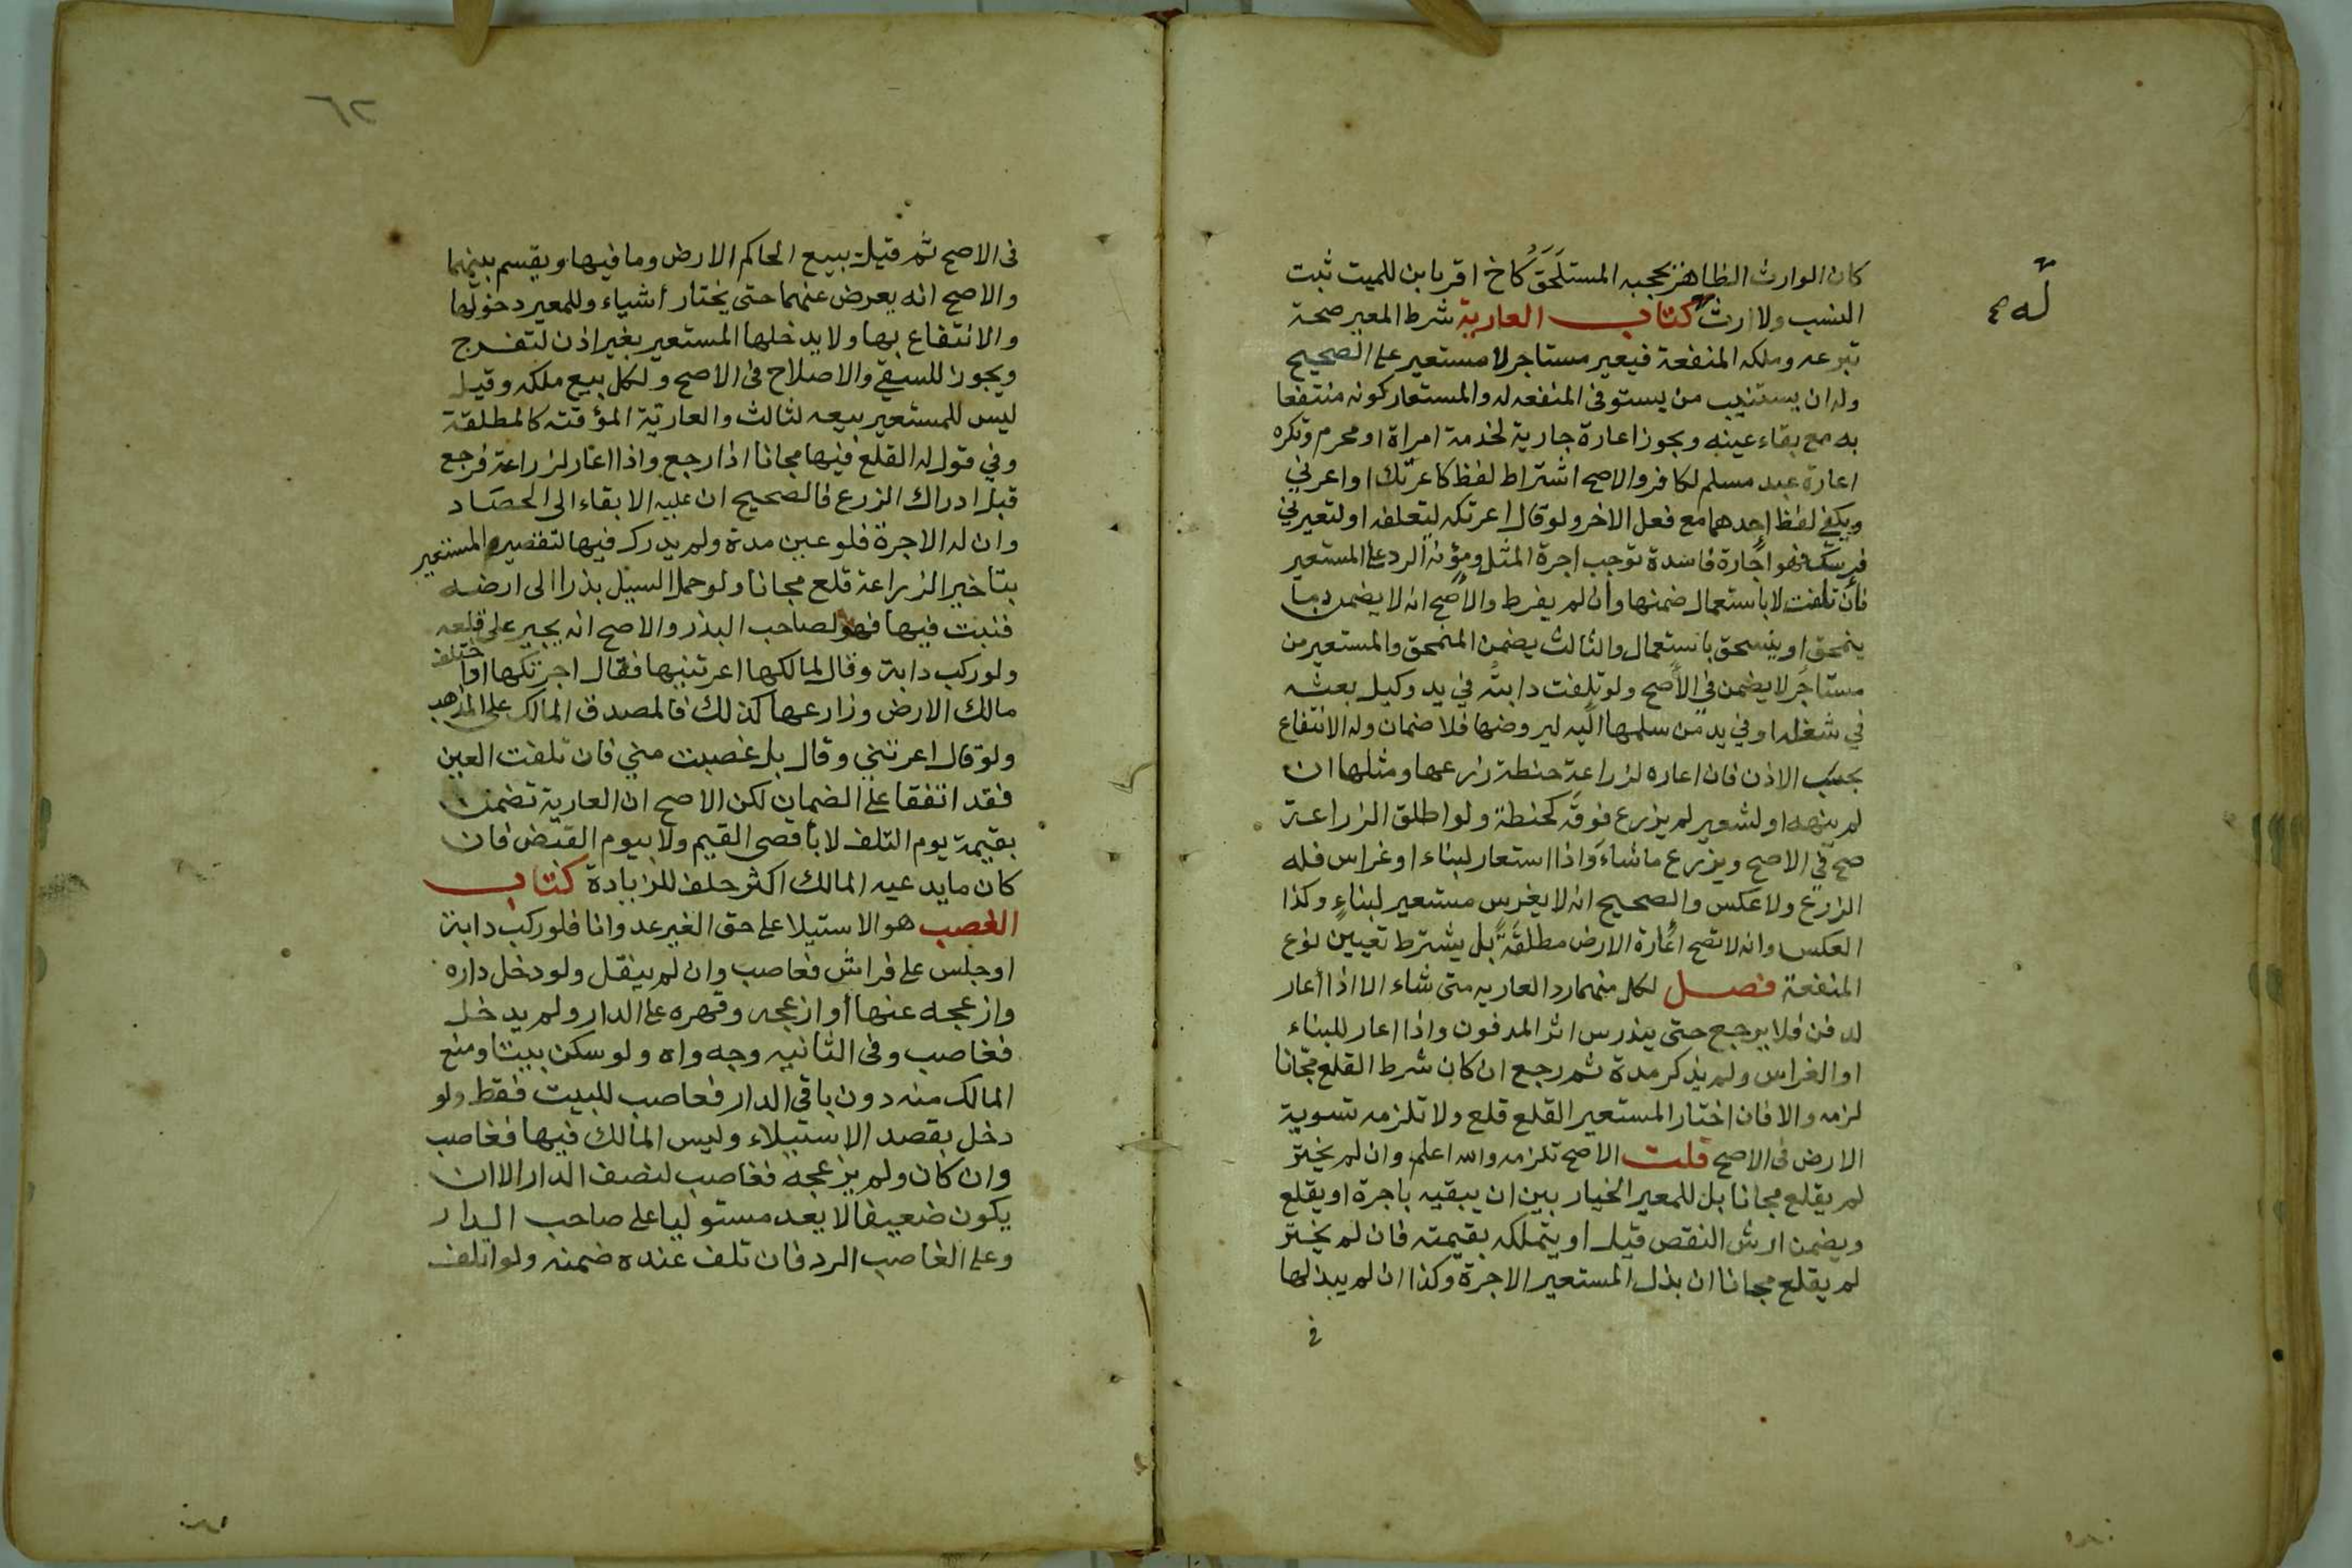 كان الوارث الظاهر يحجبه المستلحَقُ كاخ اقر بابن للميت ثبت
النسب ولا ارث كتاب العارية شرط المعير صحة
له
تبرعه وملكه المنفعة فيعير مستاجر لا مستعير على الصحيح
وله ان يستنيب من يستوفي المنفعه له والمستعار كونه منتفعا
به مع بقاء عينه ويجوز اعارة جارية لخدمة امراة او محرم وتكره
اعارة عبد مسلم لكافر والاصح اشتراط لفظ كاعرتك او اعرني
ويكفي لفظ احدهما مع فعل الاخر ولو قال اعرتكه لتعلفه او لتعيرني
فرسك فهو اجارة فاسدة توجب اجرة المثل ومؤنة الرد على المستعير
فان تلفت لا باستعمال ضمنها وان لم يفرط والاصح انه لا يضمن ما
ينمحق او ينسحق باستعمال والثالث يضمن المنمحق والمستعير من
مستاجَر لا يضمن في الاصح ولو تلفت دابته في يد وكيل بعثه
في شغله او في يد من سلمها اليه ليروضها فلا ضمان وله الانتفاع
بحسب الاذن فان اعاره لزراعة حنطة زرعها ومثلها ان
لم ينهه او لشعير لم يزرع فوقه كحنطة ولو اطلق الزراعة
صح في الاصح ويزرع ما شاء واذا استعار لبناء او غراس فله
الزرع ولا عكس والصحيح انه لا يغرس مستعير لبناءٍ وكذا
العكس وانه لا تصح اعارة الارض مطلقةً بل يشترط تعيين نوع
المنفعة فصل لكل منهما رد العاريه متى شاء الا اذا اعار
لدفن فلا يرجع حتى يندرس اثر المدفون واذا اعار للبناء
او الغراس ولم يذكر مدة ثم رجع ان كان شرط القلع مجّانا
لزمه والا فان اختار المستعير القلع قلع ولا تلزمه تسوية
الارض في الاصح قلت الاصح تلزمه والله اعلم وان لم يختر
لم يقلع مجانا بل للمعير الخيار بين ان يبقيه باجرة او يقلع
ويضمن ارش النقص قيل او يتملكه بقيمته فان لم يختر
لم يقلع مجانا ان بذل المستعير الاجرة وكذا ان لم يبذلها
في
٦٢
في الاصح ثم قيل يبيع الحاكم الارض وما فيها ويقسم بينهما
والاصح انه يعرض عنهما حتى يختار أشياء وللمعير دخولها
والانتفاع بها ولا يدخلها المستعير بغير اذن لتفرج
ويجوز للسقي والاصلاح في الاصح ولكل بيع ملكه وقيل
ليس للمستعير بيعه لثالث والعاريّة المؤقتة كالمطلقة
وفي قول له القلع فيها مجانا اذا رجع واذا اعار لزراعة فرجع
قبل ادراك الزرع فالصحيح ان عليه الابقاء الى الحصاد
وان له الاجرة فلو عين مدة ولم يدرك فيها لتقصير المستعير
بتاخير الزراعة قلع مجانا ولو حمل السيل بذرا الى ارضه
فنبت فيها فهو لصاحب البذر والاصح انه يجبر على قلعه
ولو ركب دابة وقال لمالكها اعرتنيها فقال اجرتكها او اختلف
مالك الارض وزارعها كذلك فالمصدق المالك على المذهب
ولو قال اعرتني وقال بل غصبت مني فان تلفت العين
فقد اتفقا على الضمان لكن الاصح ان العارية تضمن
بقيمة يوم التلف لا باقصى القيم ولا بيوم القبض فان
كان ما يدعيه المالك اكثر حلف للزيادة كتاب
الغصب هو الاستيلا على حق الغير عدوانا فلو ركب دابة
او جلس على فراش فغاصب وان لم ينقل ولو دخل داره
وازعجه عنها أو ازعجه وقهره على الدار ولم يدخل
فغاصب وفي الثانيه وجه واه ولو سكن بيتا ومنع
المالك منه دون باقي الدار فغاصب للبيت فقط ولو
دخل بقصد الاستيلاء وليس المالك فيها فغاصب
وان كان ولم يزعجه فغاصب لنصف الدار الا ان
يكون ضعيفا لا يعد مستوليا على صاحب الدار
وعلى الغاصب الرد فان تلف عنده ضمنه ولو اتلف